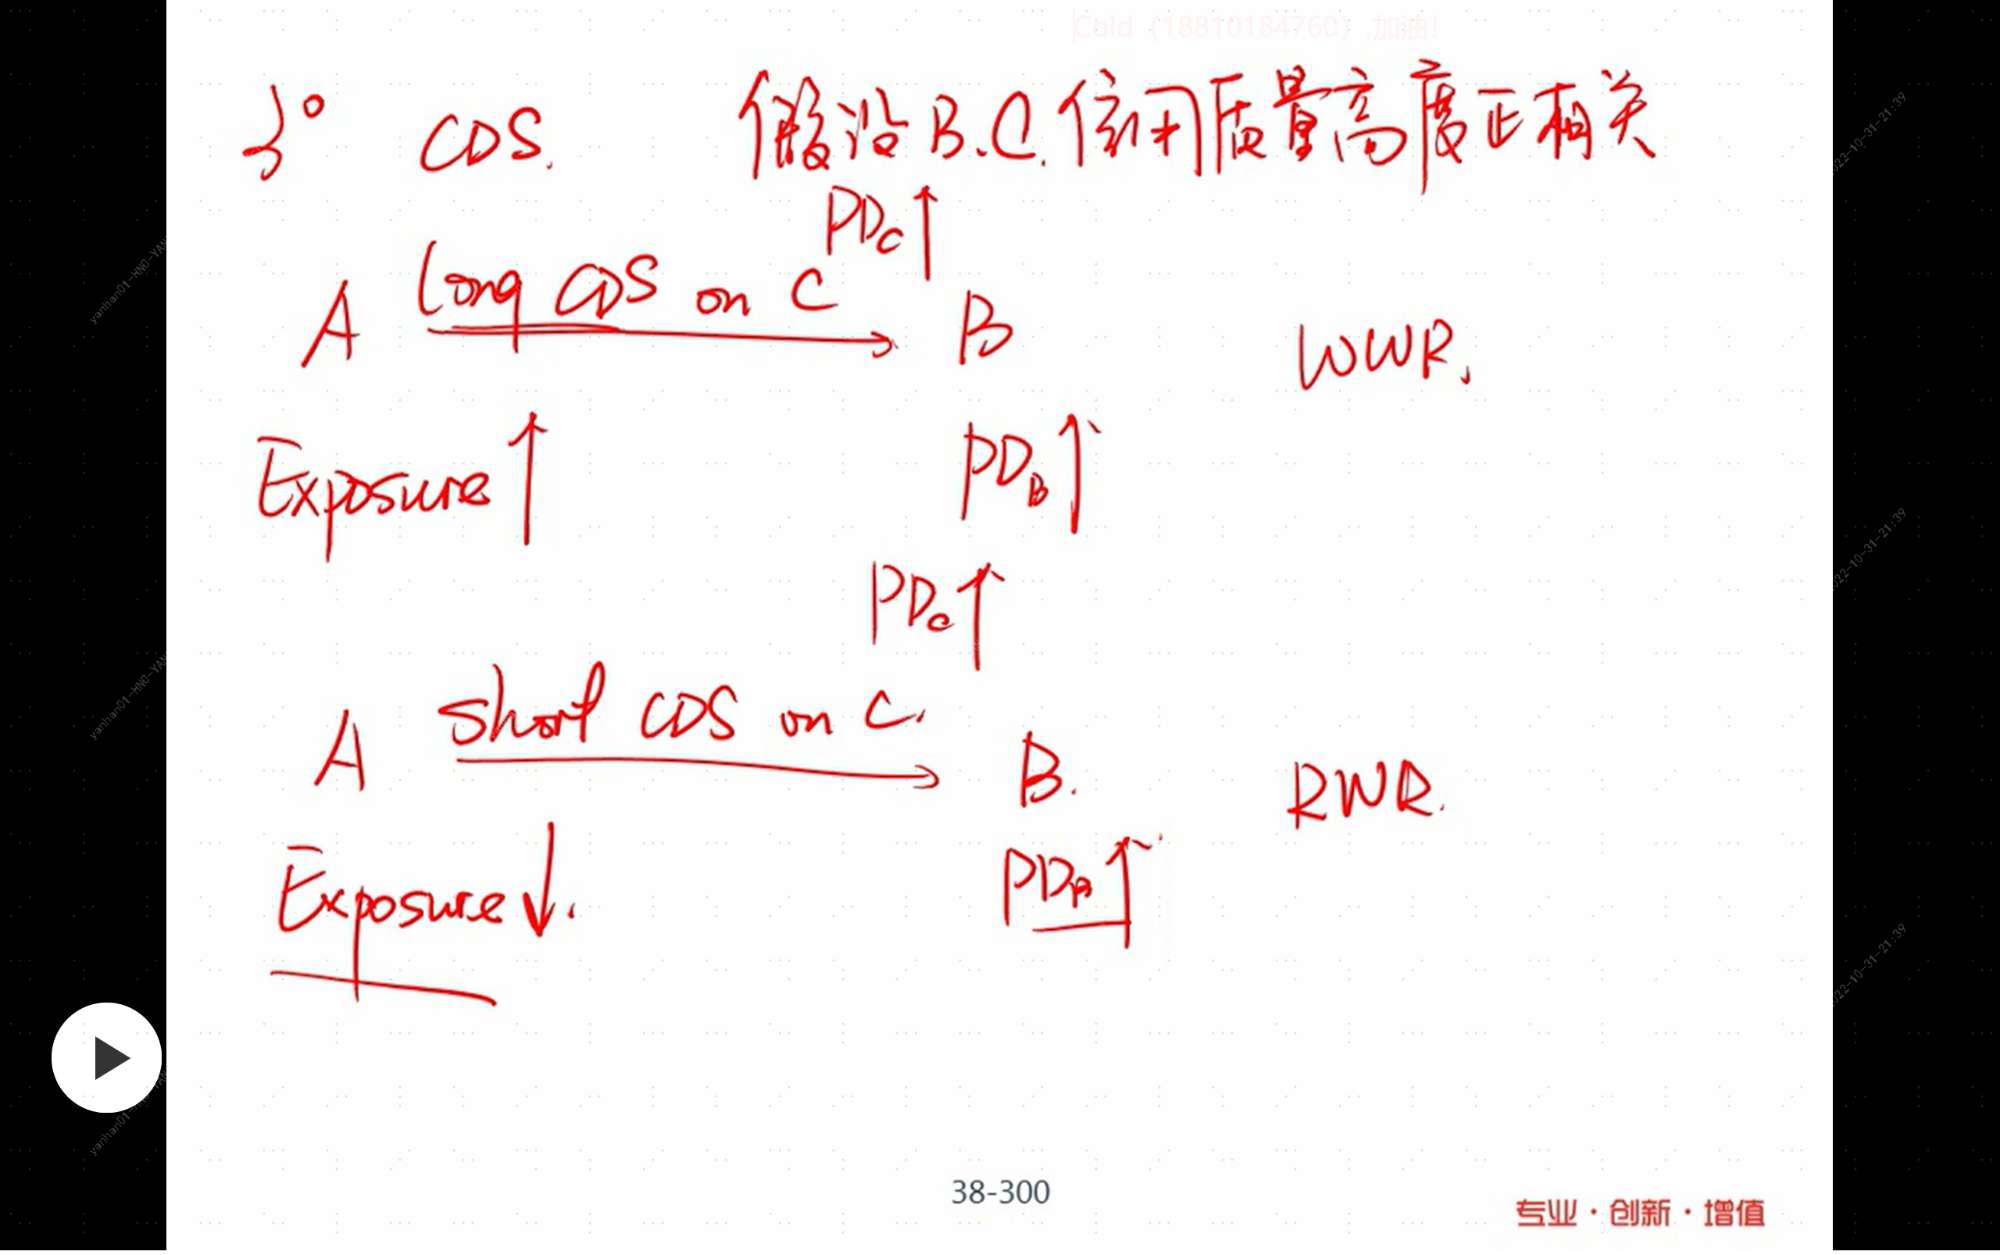 Cold (18810184760) ,加油!
3° CDS. 假设B.C.信用质量高度正相关
PDC↑
A long CDS on C B WWR.
Exposure↑ PDB↑
PDC↑
A short CDS on C. B. RWR.
Exposure↓. PDB↑
38-300
专业·创新·增值